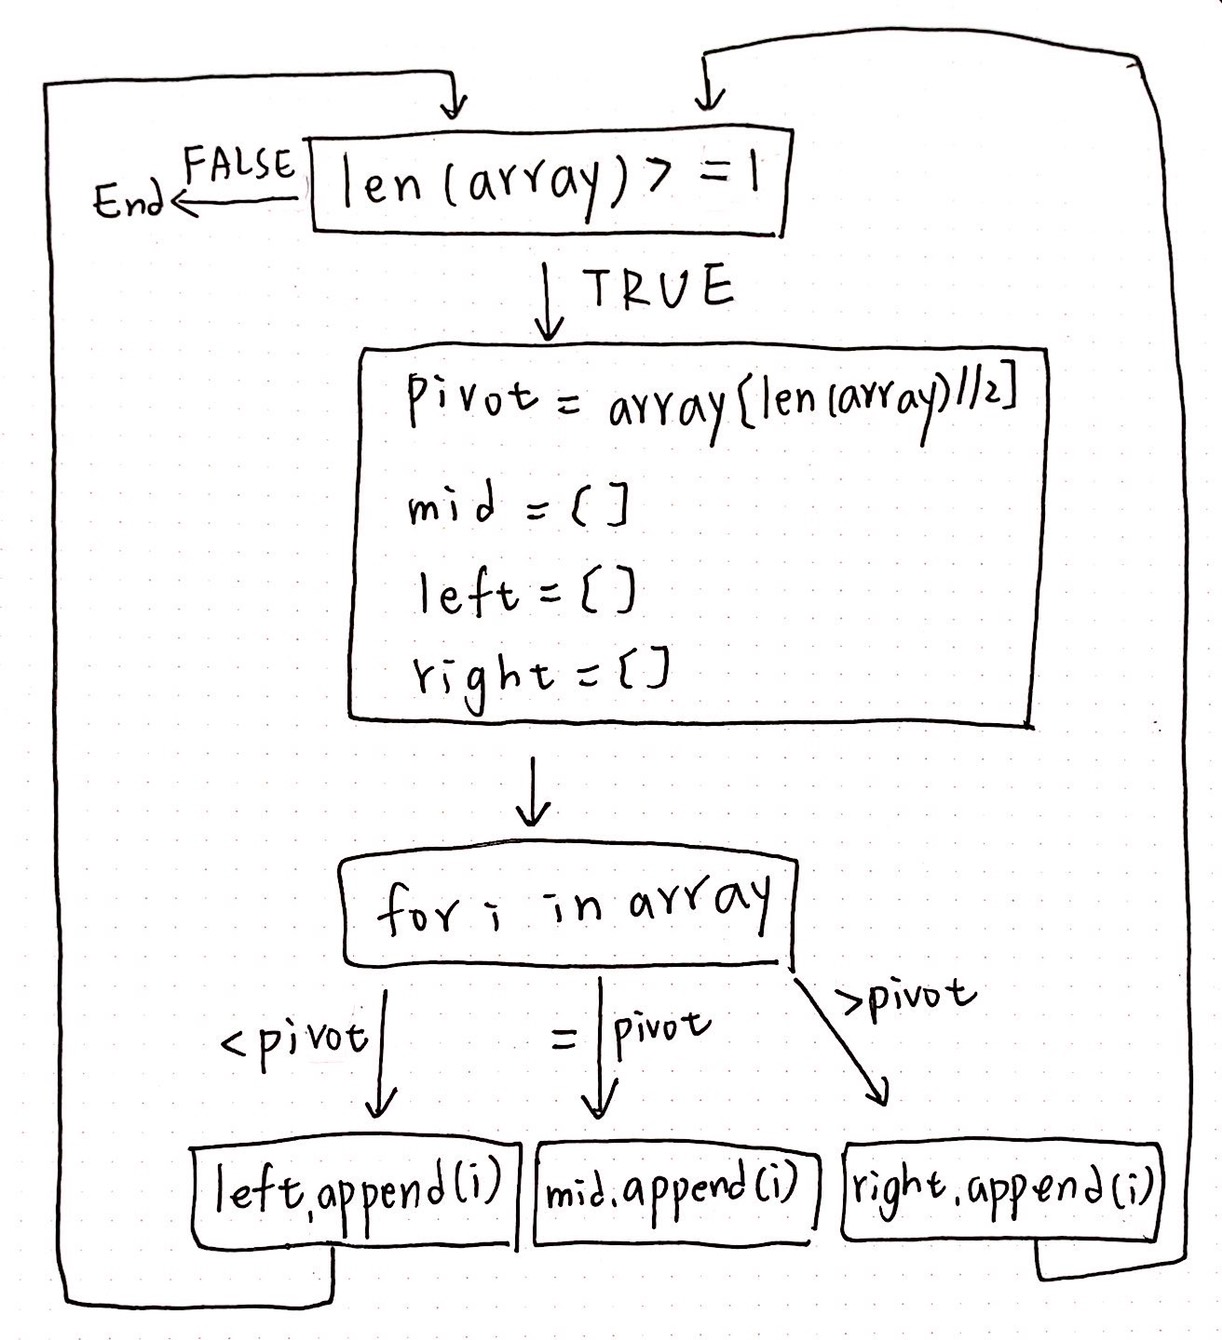 FALSE
End
len (array) > = 1
TRUE
pivot = array[len(array)//2]
mid = []
left = []
right = []
for i in array
< pivot
= pivot
>pivot
left.append(i)
mid.append(i)
right.append(i)